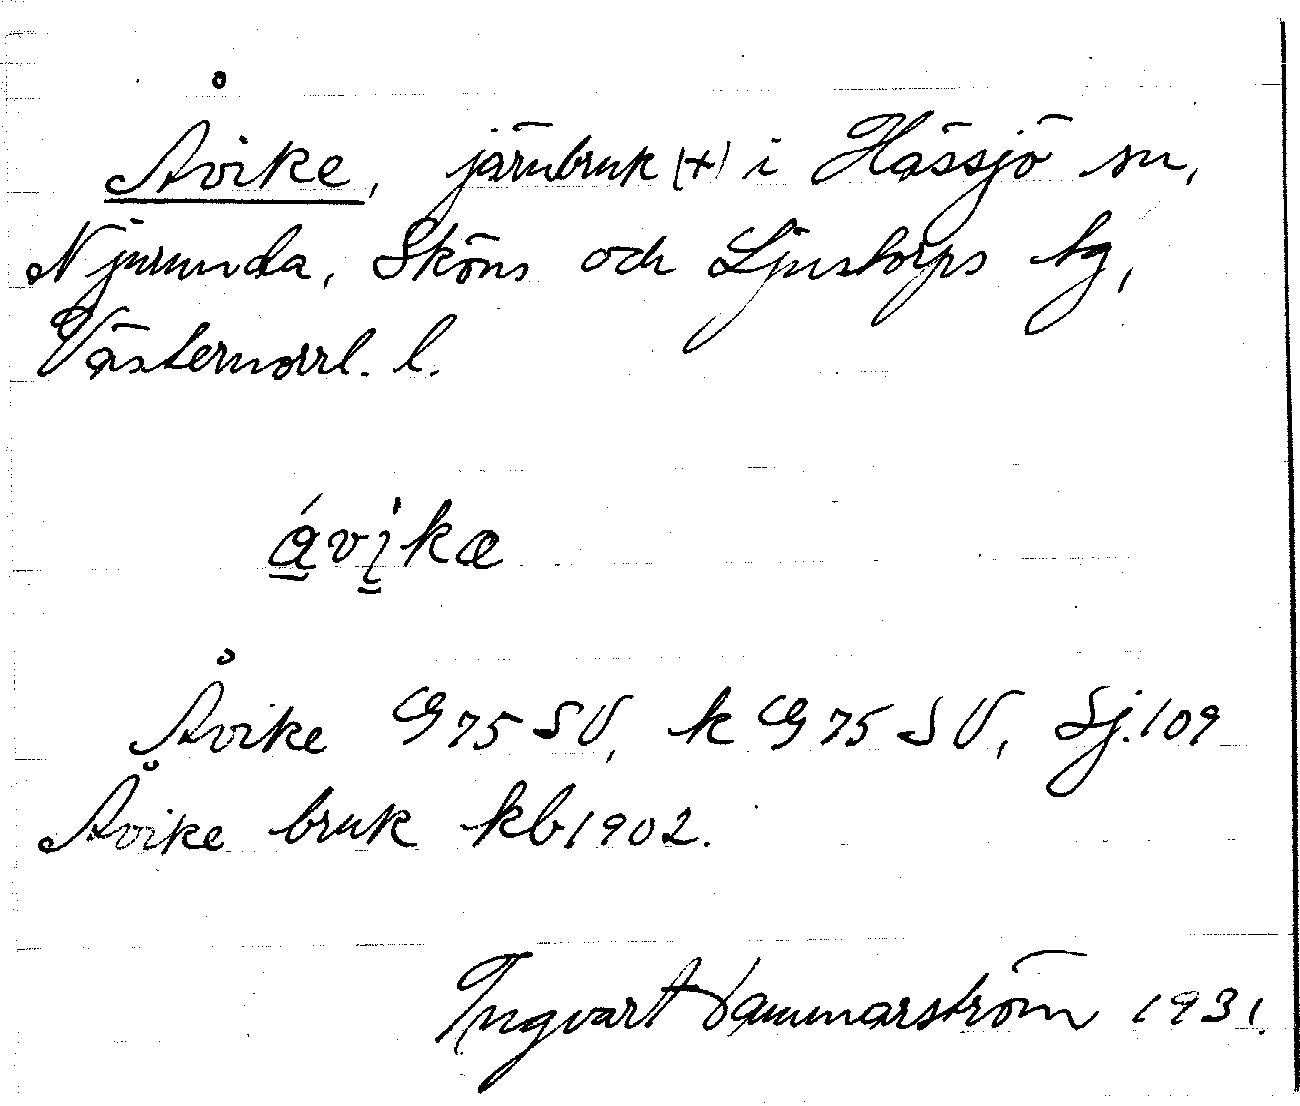 Åvike, järnbruk (+) i Hässjö sn,
Njurunda, Sköns och Ljustorps tg,
Västernorrl. l.
á̲vi̲kæ
Åvike G 75 SV, k G 75 SV, Lj. 109
Åvike bruk kb 1902.
Ingvart Hammarström 1931.